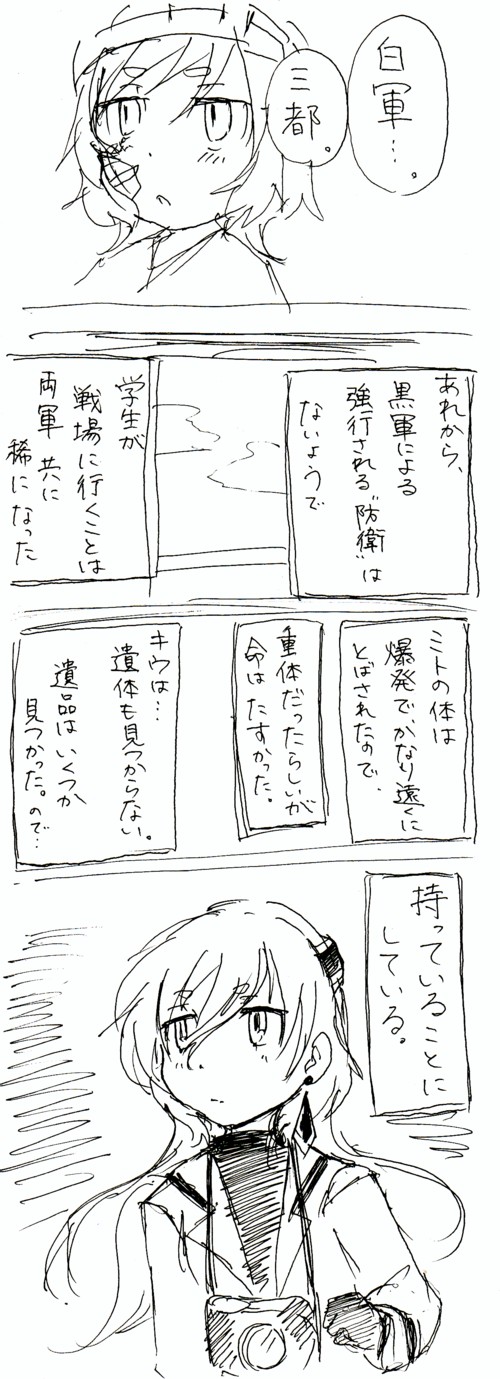 白軍…。
三都。
あれから、
黒軍による
強行される"防衛"は
ないようで
学生が
戦場に行くことは
両軍 共に
稀になった
ミトの体は
爆発で、かなり遠くに
とばされたので、
重体だったらしいが
命は たすかった。
キウは…
遺体も見つからない。
遺品は いくつか
見つかった。ので…
持っていることに
している。